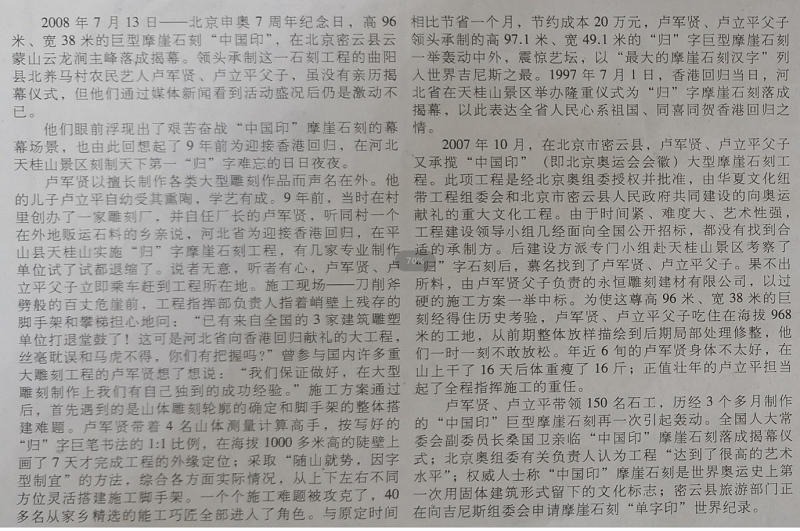 2008 年 7 月 13 日——北京申奥 7 周年纪念日，高 96
米、宽 38 米的巨型摩崖石刻“中国印”，在北京密云县云
蒙山云龙涧主峰落成揭幕。领头承制这一石刻工程的曲阳
县北养马村农民艺人卢军贤、卢立平父子，虽没有亲历揭
幕仪式，但他们通过媒体新闻看到活动盛况后仍是激动不
已。
他们眼前浮现出了艰苦奋战“中国印”摩崖石刻的幕
幕场景，也由此回想起了 9 年前为迎接香港回归，在河北
天桂山景区刻制天下第一“归”字难忘的日日夜夜。
卢军贤以擅长制作各类大型雕刻作品而声名在外。他
的儿子卢立平自幼受其熏陶，学艺有成。9 年前，当时在村
里创办了一家雕刻厂，并自任厂长的卢军贤，听同村一个
在外地贩运石料的乡亲说，河北省为迎接香港回归，在平
山县天桂山实施“归”字摩崖石刻工程，有几家专业制作
单位试了试都退缩了。说者无意，听者有心，卢军贤、卢
立平父子立即乘车赶到工程所在地。施工现场——刀削斧
劈般的百丈危崖前，工程指挥部负责人指着峭壁上残存的
脚手架和攀梯担心地问：“已有来自全国的 3 家建筑雕塑
单位打退堂鼓了！这可是河北省向香港回归献礼的大工程，
丝毫耽误和马虎不得，你们有把握吗？”曾参与国内许多重
大雕刻工程的卢军贤想了想说：“我们保证做好，在大型
雕刻制作上我们有自己独到的成功经验。”施工方案通过
后，首先遇到的是山体雕刻轮廓的确定和脚手架的整体搭
建难题。卢军贤带着 4 名山体测量计算高手，按写好的
“归”字巨笔书法的 1:1 比例，在海拔 1000 多米高的陡壁上
画了 7 天才完成工程的外缘定位；采取“随山就势，因字
型制宜”的方法，综合各方面实际情况，从上下左右不同
方位灵活搭建施工脚手架。一个个施工难题被攻克了，40
多名从家乡精选的能工巧匠全部进入了角色。与原定时间
相比节省一个月，节约成本 20 万元，卢军贤、卢立平父子
领头承制的高 97.1 米、宽 49.1 米的“归”字巨型摩崖石刻
一举轰动中外，震惊艺坛，以“最大的摩崖石刻汉字”列
入世界吉尼斯之最。1997 年 7 月 1 日，香港回归当日，河
北省在天桂山景区举办隆重仪式为“归”字摩崖石刻落成
揭幕，以此表达全省人民心系祖国、同喜同贺香港回归之
情。
2007 年 10 月，在北京市密云县，卢军贤、卢立平父子
又承揽“中国印”（即北京奥运会会徽）大型摩崖石刻工
程。此项工程是经北京奥组委授权并批准，由华夏文化纽
带工程组委会和北京市密云县人民政府共同建设的向奥运
献礼的重大文化工程。由于时间紧、难度大、艺术性强，
工程建设领导小组几经面向全国公开招标，都没有找到合
适的承制方。后建设方派专门小组赴天桂山景区考察了
“归”字石刻后，慕名找到了卢军贤、卢立平父子。果不出
所料，由卢军贤父子负责的永恒雕刻建材有限公司，以过
硬的施工方案一举中标。为使这尊高 96 米、宽 38 米的巨
刻经得住历史考验，卢军贤、卢立平父子吃住在海拔 968
米的工地，从前期整体放样描绘到后期局部处理修整，他
们一时一刻不敢放松。年近 6 旬的卢军贤身体不太好，在
山上干了 16 天后体重瘦了 16 斤；正值壮年的卢立平担当
起了全程指挥施工的重任。
卢军贤、卢立平带领 150 名石工，历经 3 个多月制作
的“中国印”巨型摩崖石刻再一次引起轰动。全国人大常
委会副委员长桑国卫亲临“中国印”摩崖石刻落成揭幕仪
式；北京奥组委有关负责人认为工程“达到了很高的艺术
水平”；权威人士称“中国印”摩崖石刻是世界奥运史上第
一次用固体建筑形式留下的文化标志；密云县旅游部门正
在向吉尼斯组委会申请摩崖石刻“单字印”世界纪录。